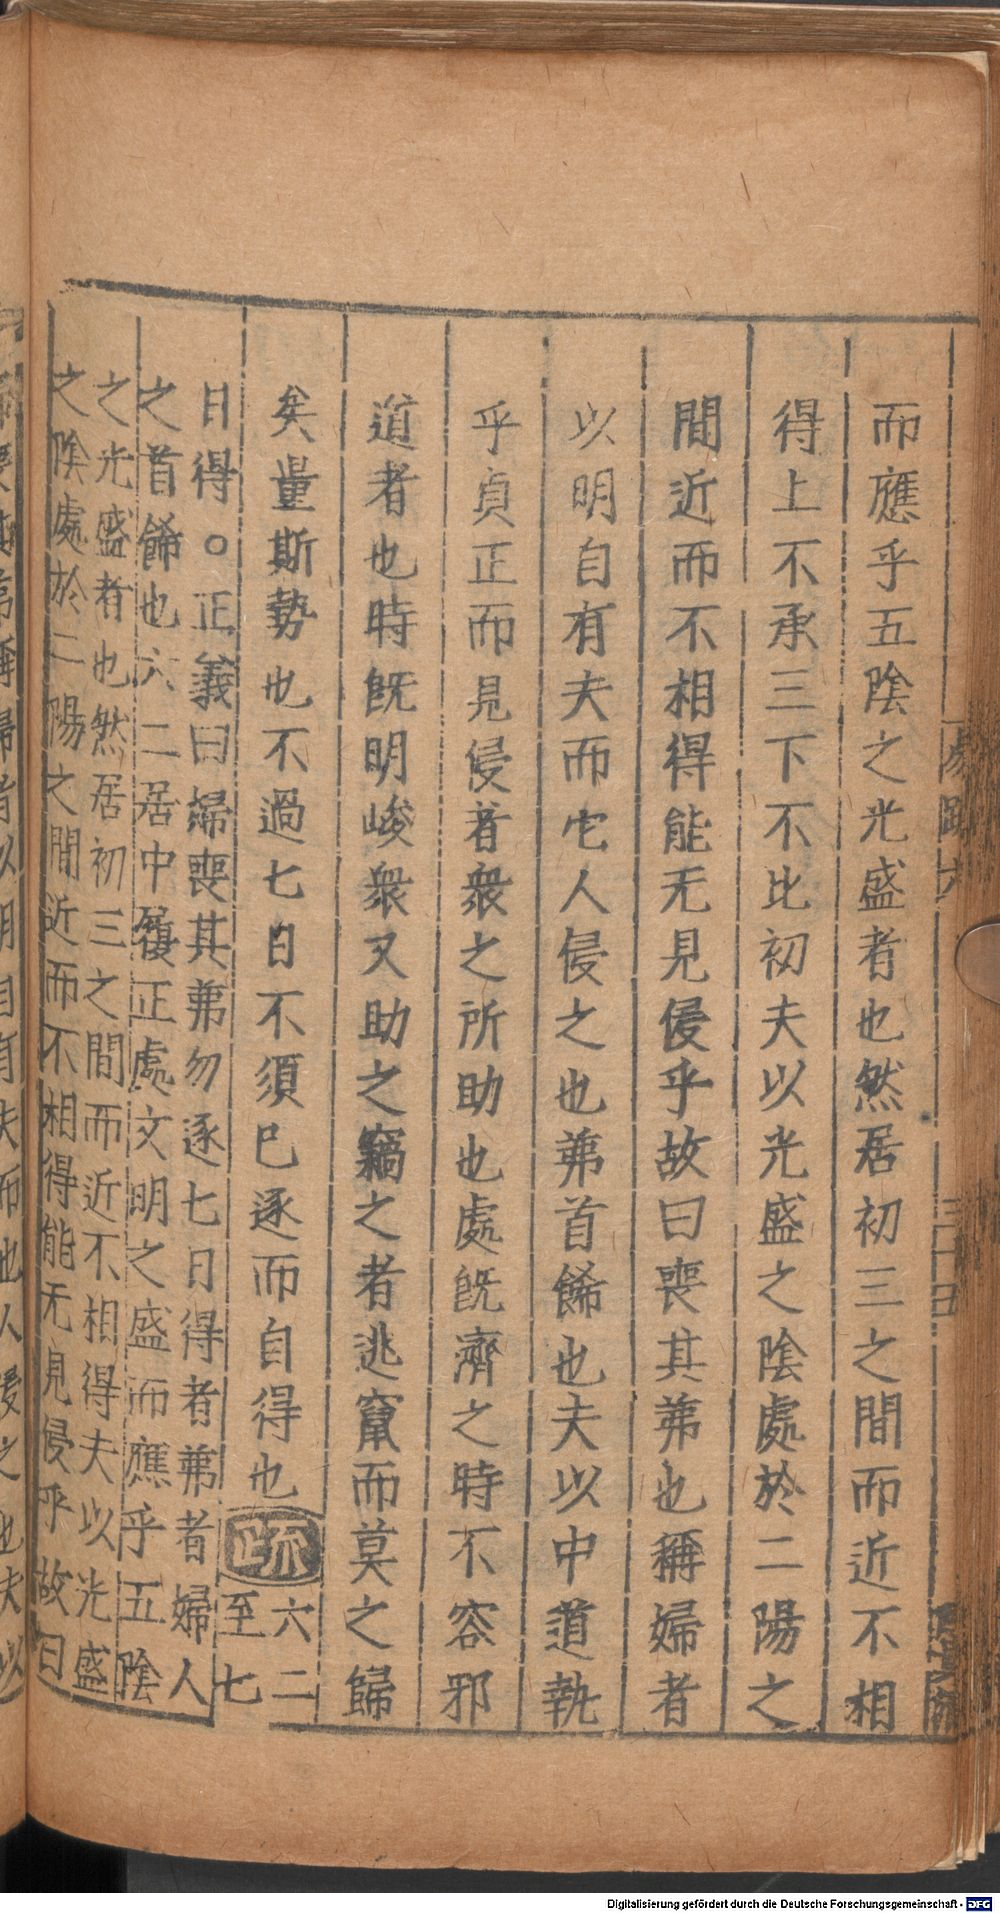 而應乎五陰之光盛者也然居初三之間而近不相
得上不承三下不比初夫以光盛之陰處於二陽之
間近而不相得能无見侵乎故曰喪其茀也稱婦者
以明自有夫而它人侵之也茀首餙也夫以中道執
乎貞正而見侵者衆之所助也處旣濟之時不容邪
道者也時旣明峻衆又助之竊之者逃竄而莫之歸
矣量斯勢也不過七日不須已逐而自得也疏六二
至七
日得○正義曰婦喪其茀勿逐七日得者茀者婦人
之首餙也六二居中履正處文明之盛而應乎五陰
之光盛者也然居初三之間而近不相得夫以光盛
之陰處於二陽之間近而不相得能无見侵乎故曰
Digitalisierung gefördert durch die Deutsche Forschungsgemeinschaft - DFG